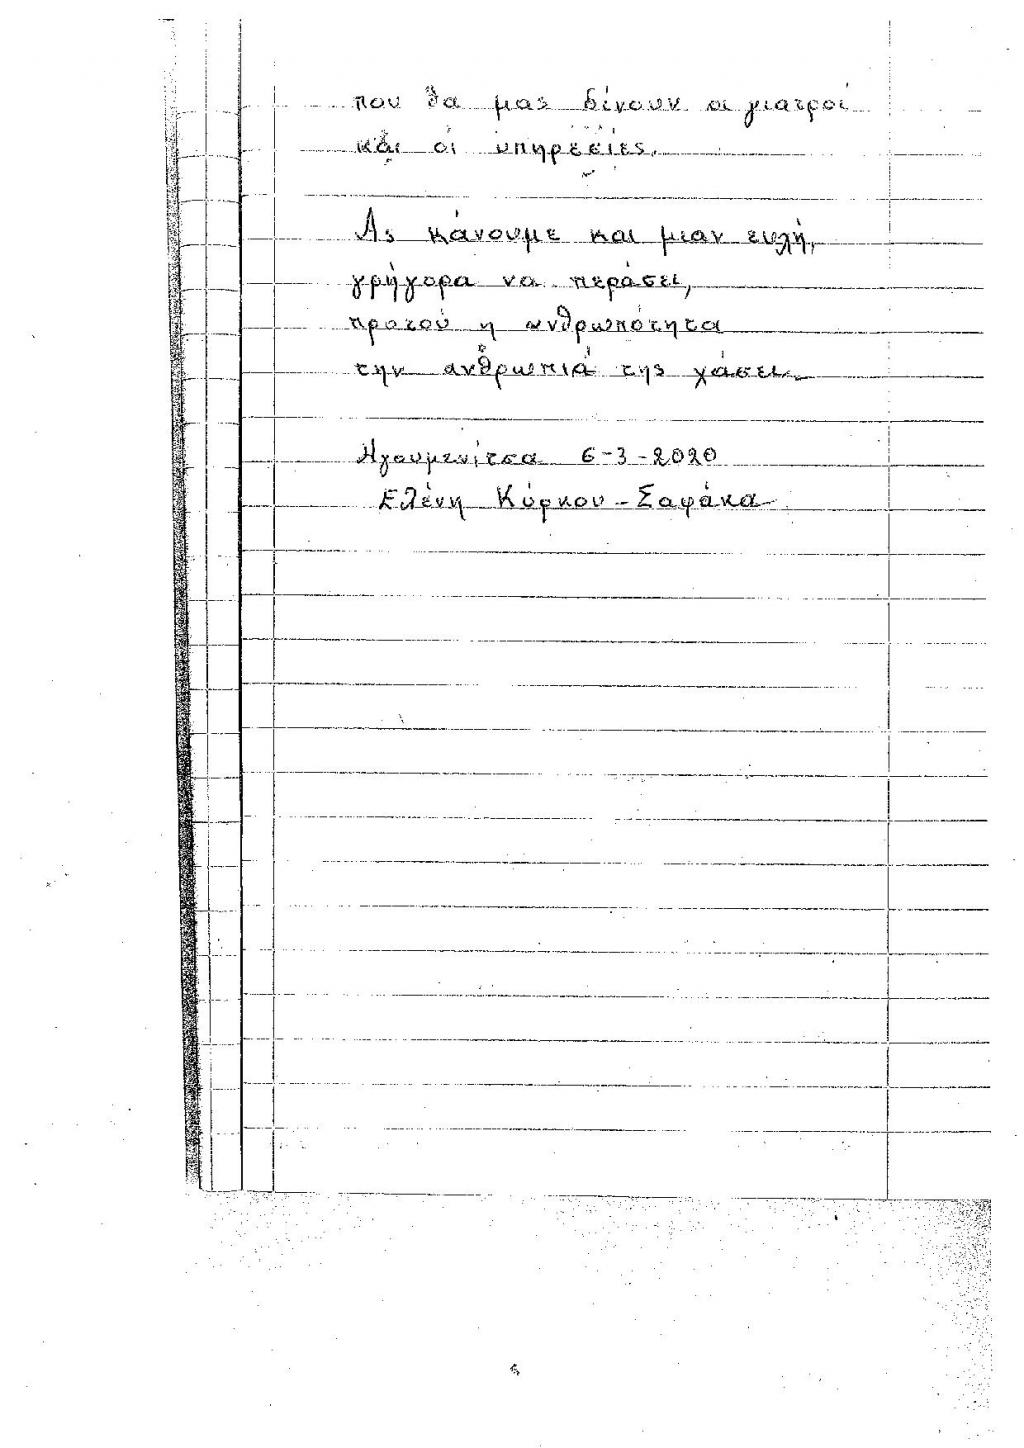 που θα μας δίνουν οι γιατροί
και οι υπηρεσίες.
Ας κάνουμε και μιαν ευχή,
γρήγορα να περάσει,
προτού η ανθρωπότητα
την ανθρωπιά της χάσει.
Ηγουμενίτσα 6-3-2020
Ελένη Κύρκου-Σαφάκα